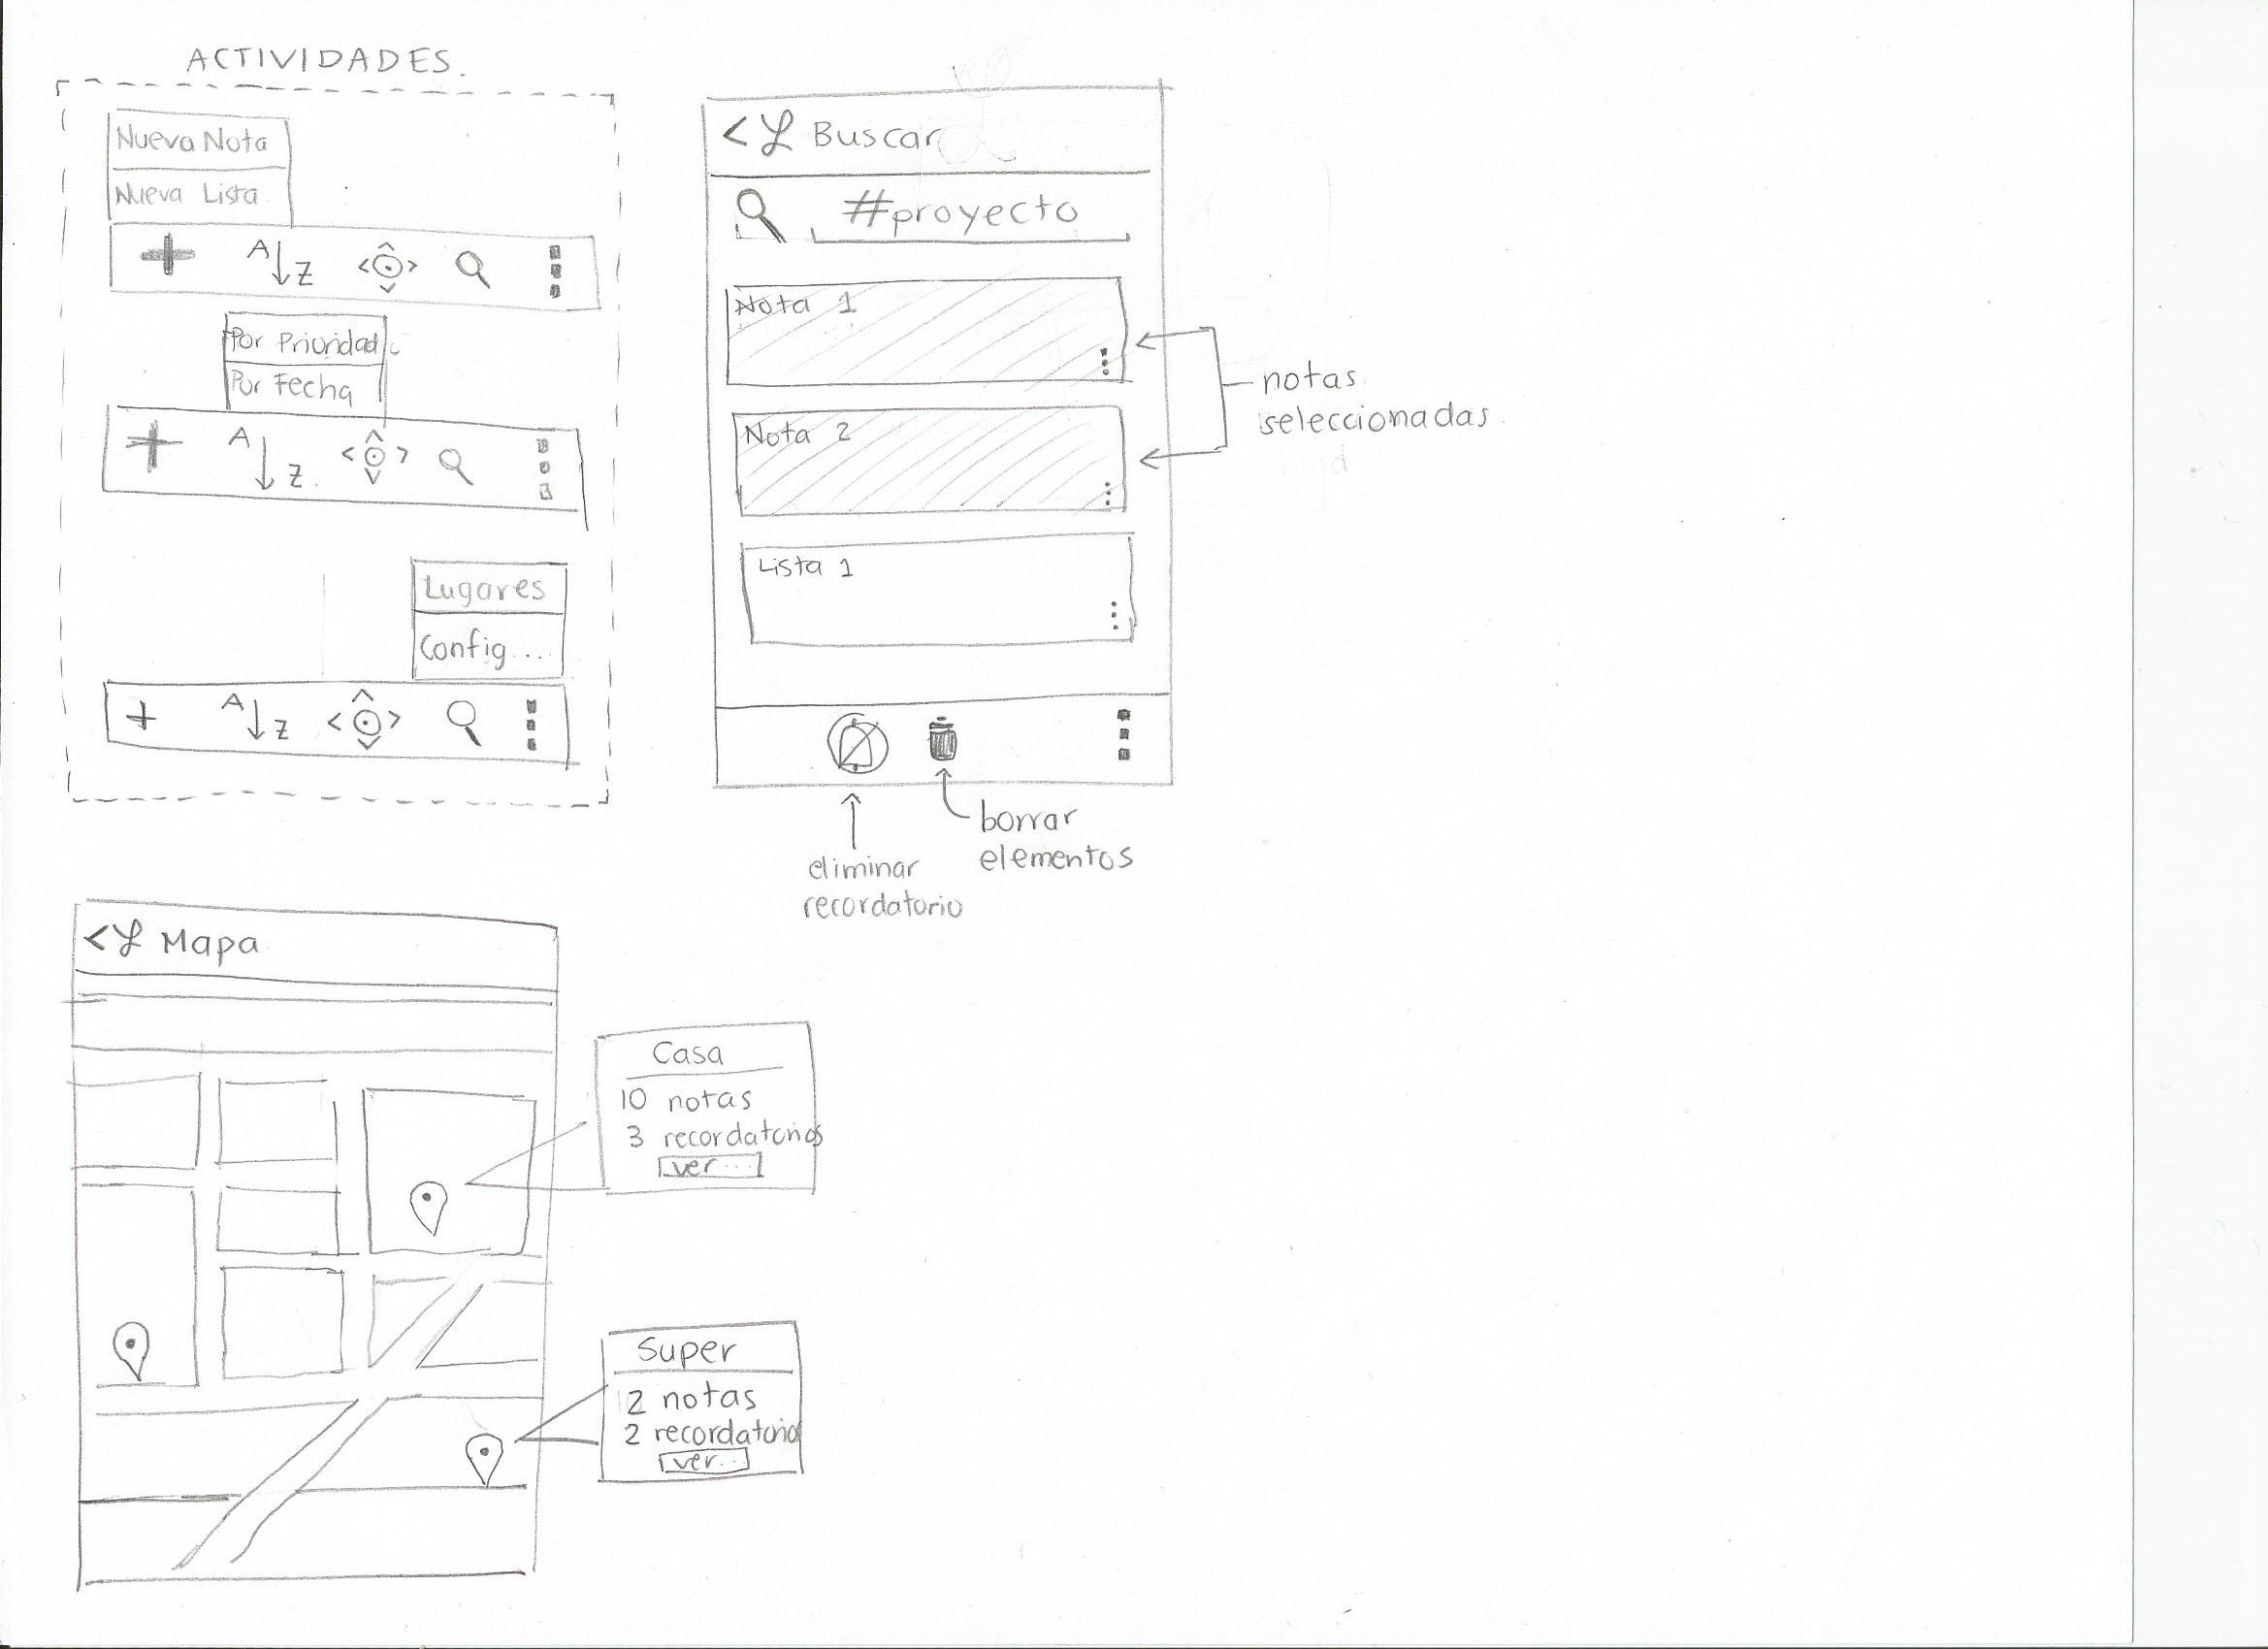 ACTIVIDADES.
Nueva Nota
Nueva Lista
A Z
Por Prioridad
Por Fecha
A Z
Lugares
Config...
A Z
< Y Buscar
#proyecto
Nota 1
Nota 2
Lista 1
notas
seleccionadas.
eliminar
recordatorio
borrar
elementos
< Y Mapa
Casa
10 notas
3 recordatorios
ver...
Super
2 notas
2 recordatorio
ver...